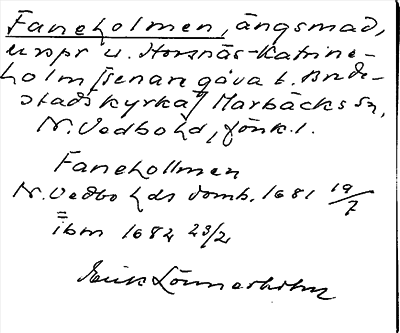 Faneholmen, ängsmad,
urspr u. Horsnäs-Katrine-
holm [senare gåva t. Brede-
stads kyrka] Marbäcks sn,
N. Vedbo hd, Jönk. l.
Faneholmen
N. Vedbo hds domb. 1681 19/7
ibm 1682 23/2
Erik Lönnerholm